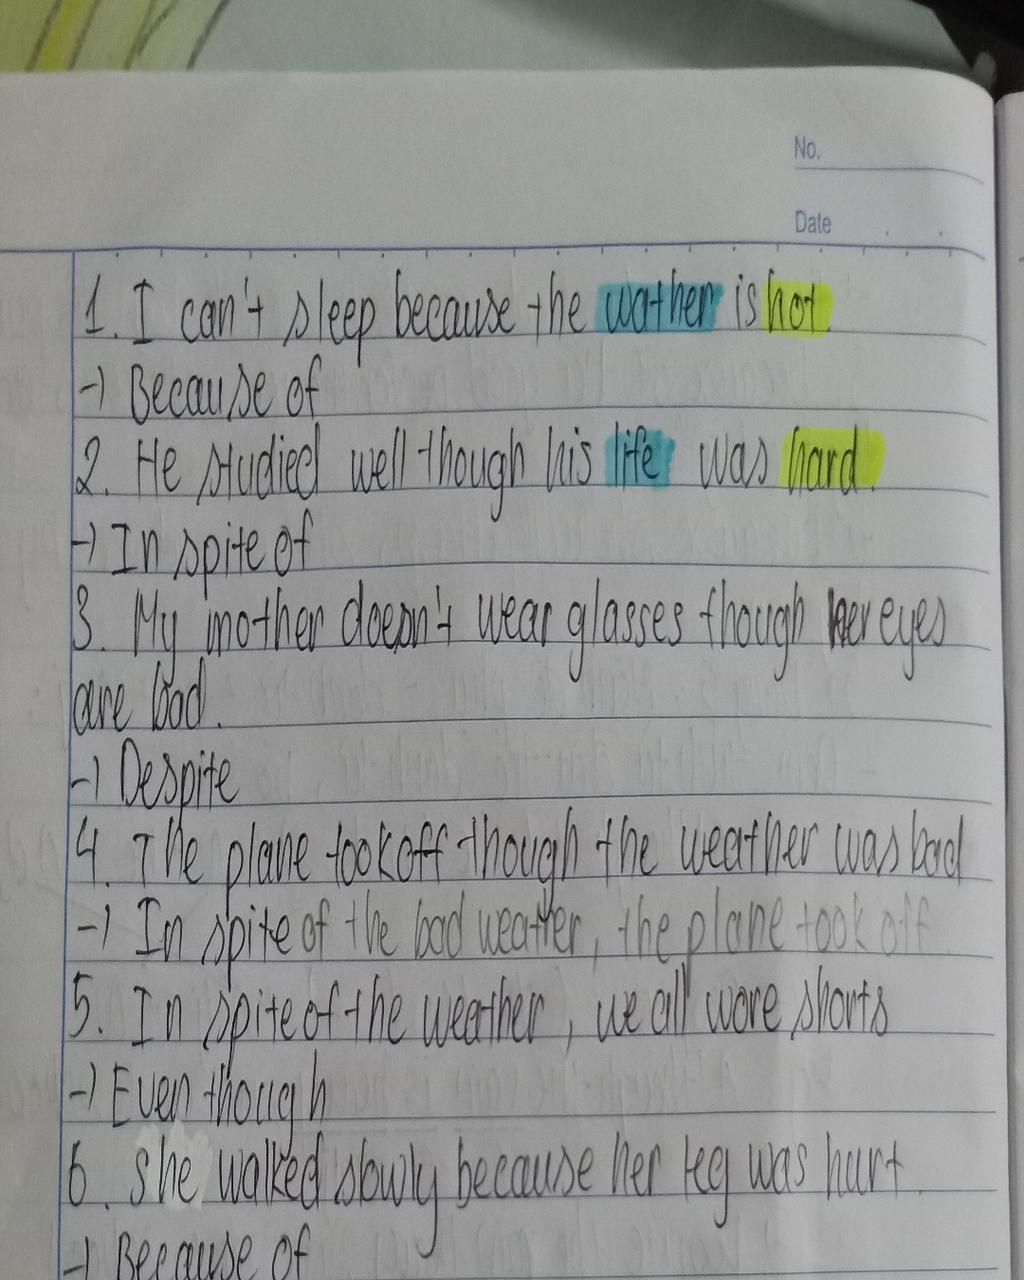 No.
Date
1. I can't sleep because the wather is hot.
→ Because of
2. He studied well though his life was hard.
→ In spite of
3. My mother doesn't wear glasses though her eyes
are bad.
→ Despite
4. The plane took off though the weather was bad
→ In spite of the bad weather, the plane took off
5. In spite of the weather, we all wore shorts
→ Even though
6. She walked slowly because her leg was hurt.
→ Because of